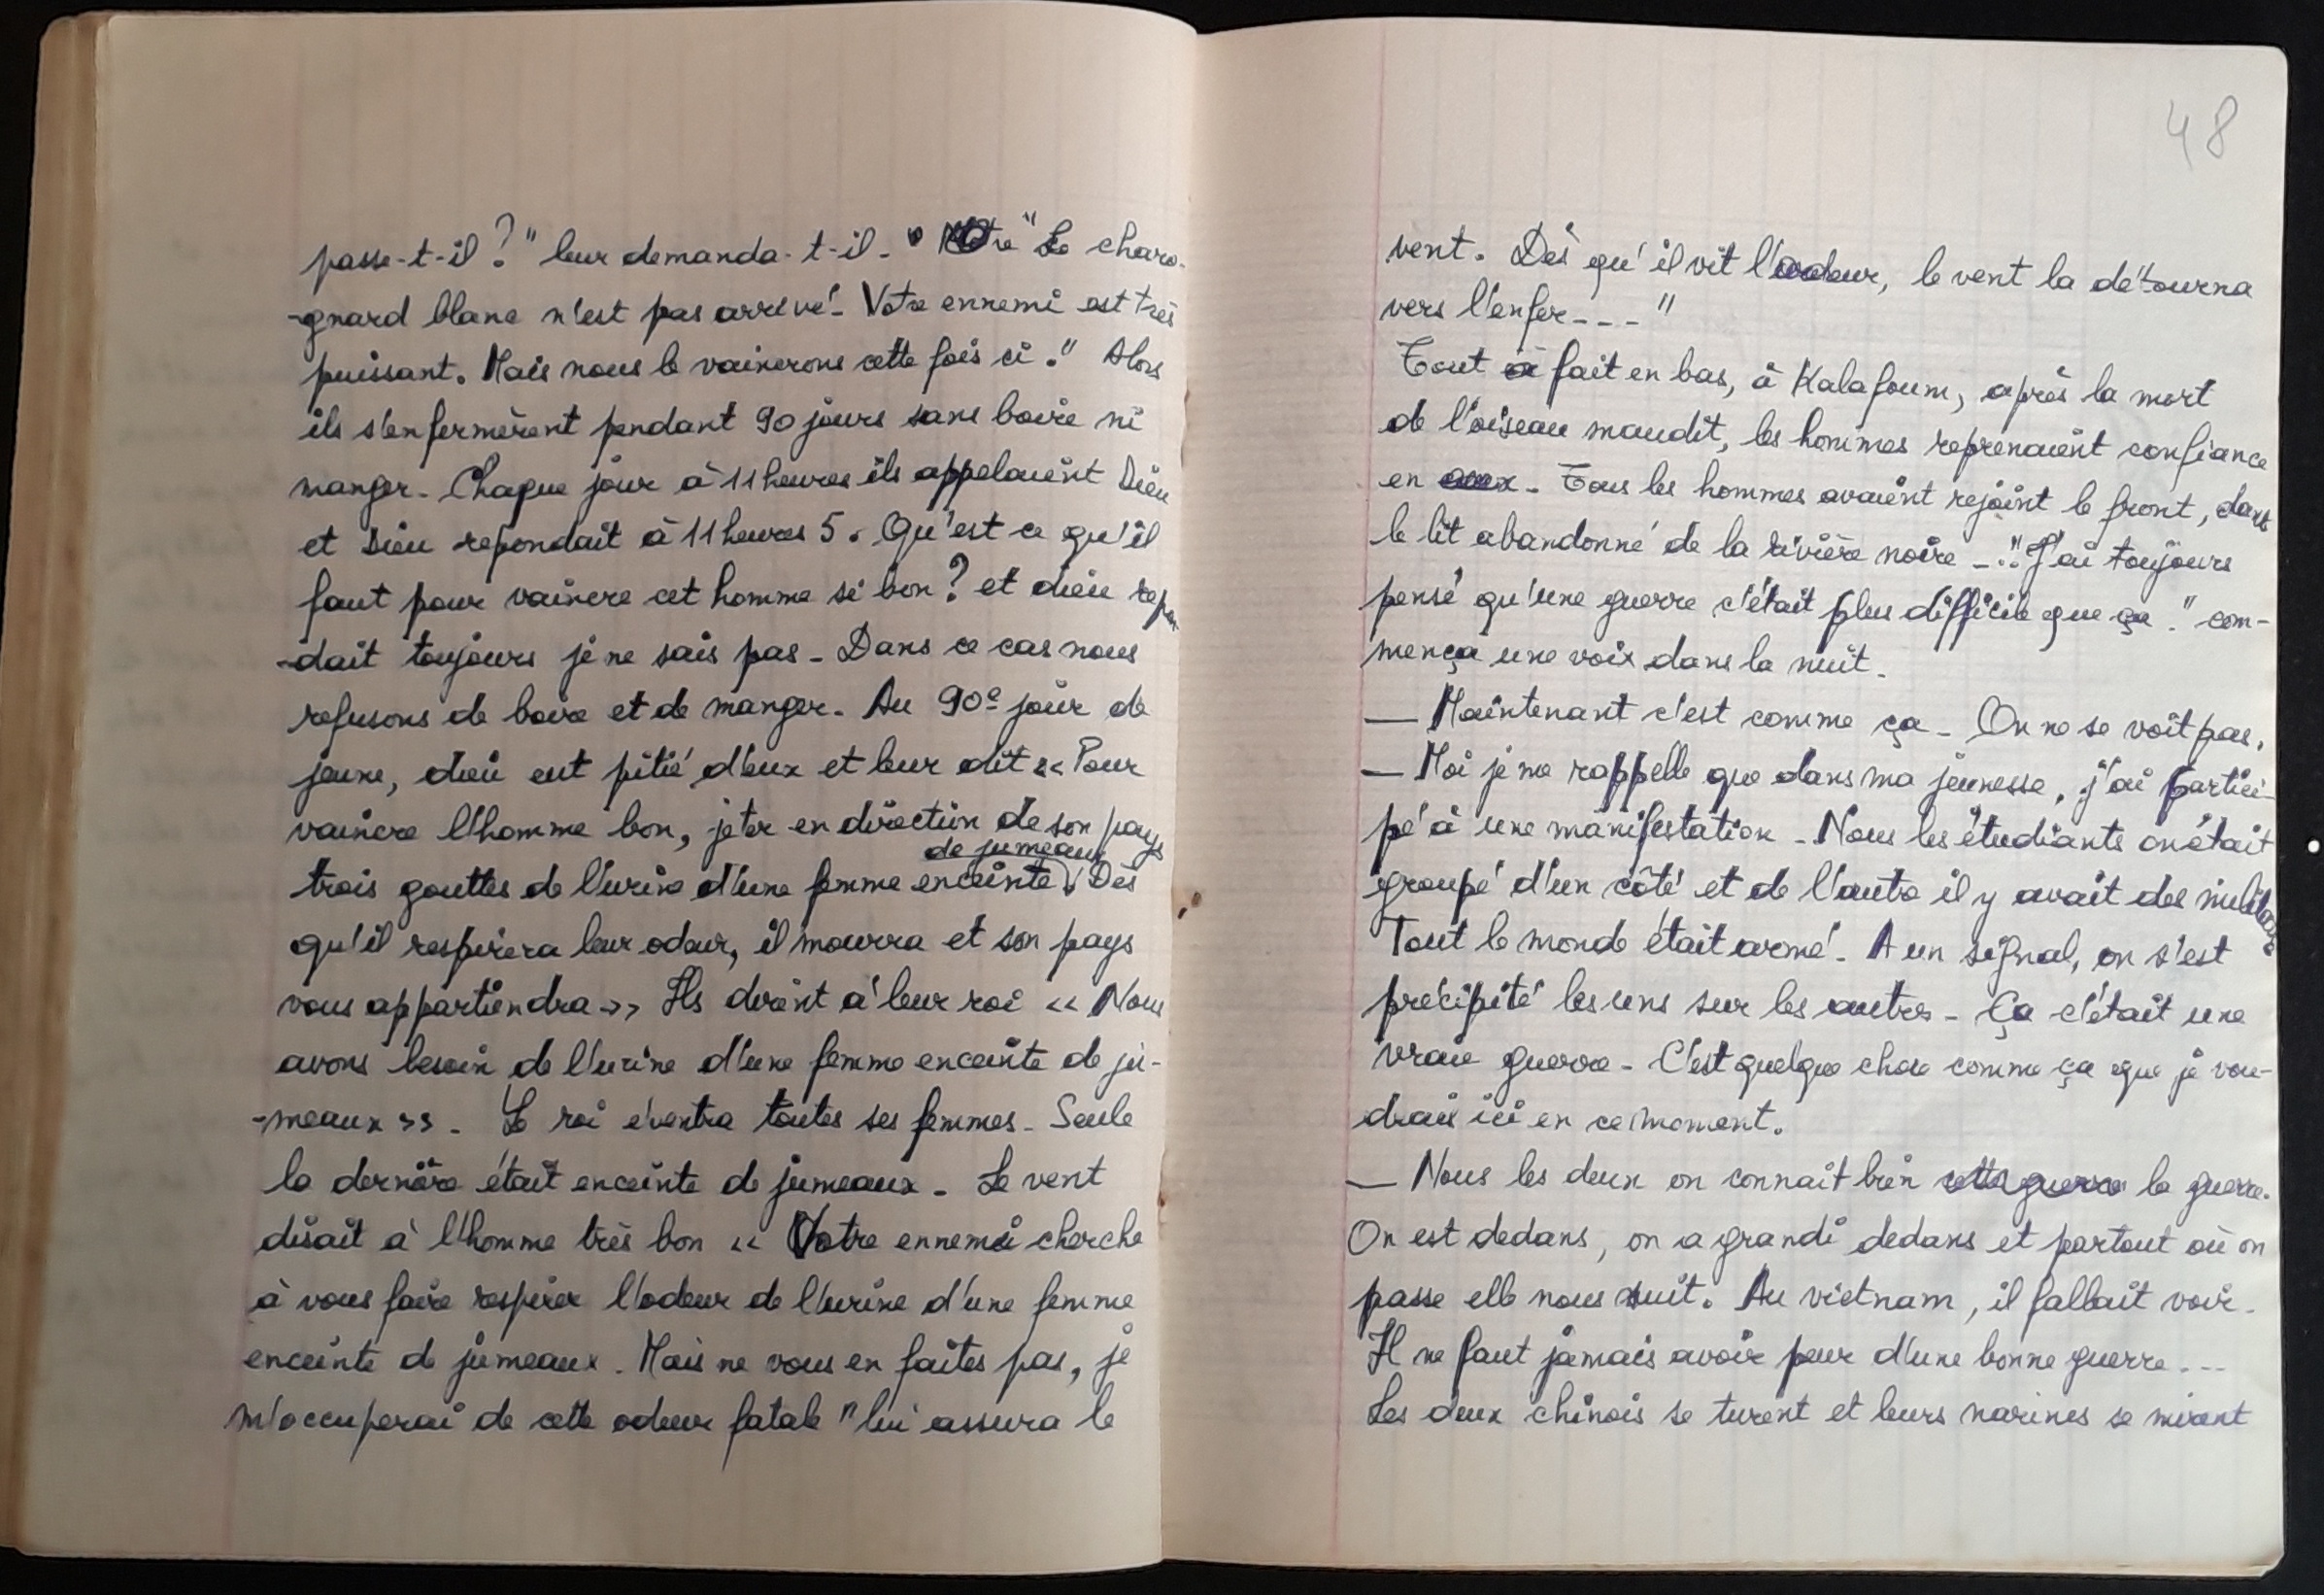 passe-t-il ?" leur demanda-t-il. " Votre " Le charo-
-gnard blanc n'est pas arrivé. Votre ennemi est très
puissant. Mais nous le vaincrons cette fois ci." Alors
ils s'enfermèrent pendant 90 jours sans boire ni
manger. Chaque jour à 11 heures ils appelaient Dieu
et Dieu repondait à 11 heures 5. Qu'est ce qu'il
faut pour vaincre cet homme si bon ? et dieu repon
-dait toujours je ne sais pas - Dans ce cas nous
refusons de boire et de manger. Au 90e jour de
jeune, dieu eut pitié d'eux et leur dit << Pour
vaincre l'homme bon, jeter en direction de son pays
de jumeaux
trois gouttes de l'urine d'une femme enceinte. Dès
qu'il respirera leur odeur, il mourra et son pays
vous appartiendra >> Ils dirent à leur roi << Nous
avons besoin de l'urine d'une femme enceinte de ju-
-meaux >>. Le roi éventra toutes ses femmes. Seule
la dernière était enceinte de jumeaux. Le vent
disait à l'homme très bon << Votre ennemi cherche
à vous faire respirer l'odeur de l'urine d'une femme
enceinte de jumeaux. Mais ne vous en faites pas, je
m'occuperai de cette odeur fatale " lui assura le
48
vent. Dès qu'il vit l'odeur, le vent la détourna
vers l'enfer---"
Tout à fait en bas, à Kalafoum, après la mort
de l'oiseau maudit, les hommes reprenaient confiance
en eux. Tous les hommes avaient rejoint le front, dans
le lit abandonné de la rivière noire -. "J'ai toujours
pensé qu'une guerre c'était plus difficile que ça." com-
mença une voix dans la nuit.
— Maintenant c'est comme ça - On ne se voit pas.
— Moi je me rappelle que dans ma jeunesse, j'ai partici-
pé à une manifestation - Nous les étudiants on était
groupé d'un côté et de l'autre il y avait des militaires
Tout le monde était armé. A un signal, on s'est
précipité les uns sur les autres - Ça c'était une
vraie guerre - C'est quelque chose comme ça que je vou-
drais ici en ce moment.
— Nous les deux on connait bien cette guerre la guerre.
On est dedans, on a grandi dedans et partout où on
passe elle nous suit. Au vietnam, il fallait voir.
Il ne faut jamais avoir peur d'une bonne guerre---
Les deux chinois se turent et leurs narines se mirent